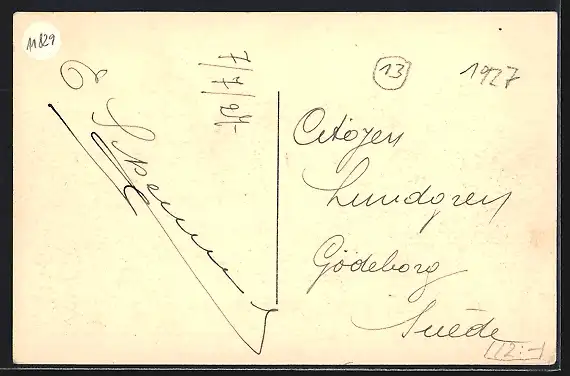 11829
7/7/27
13
1927
Citoyen
Lundgren
Gödeborg
Suède
112:-